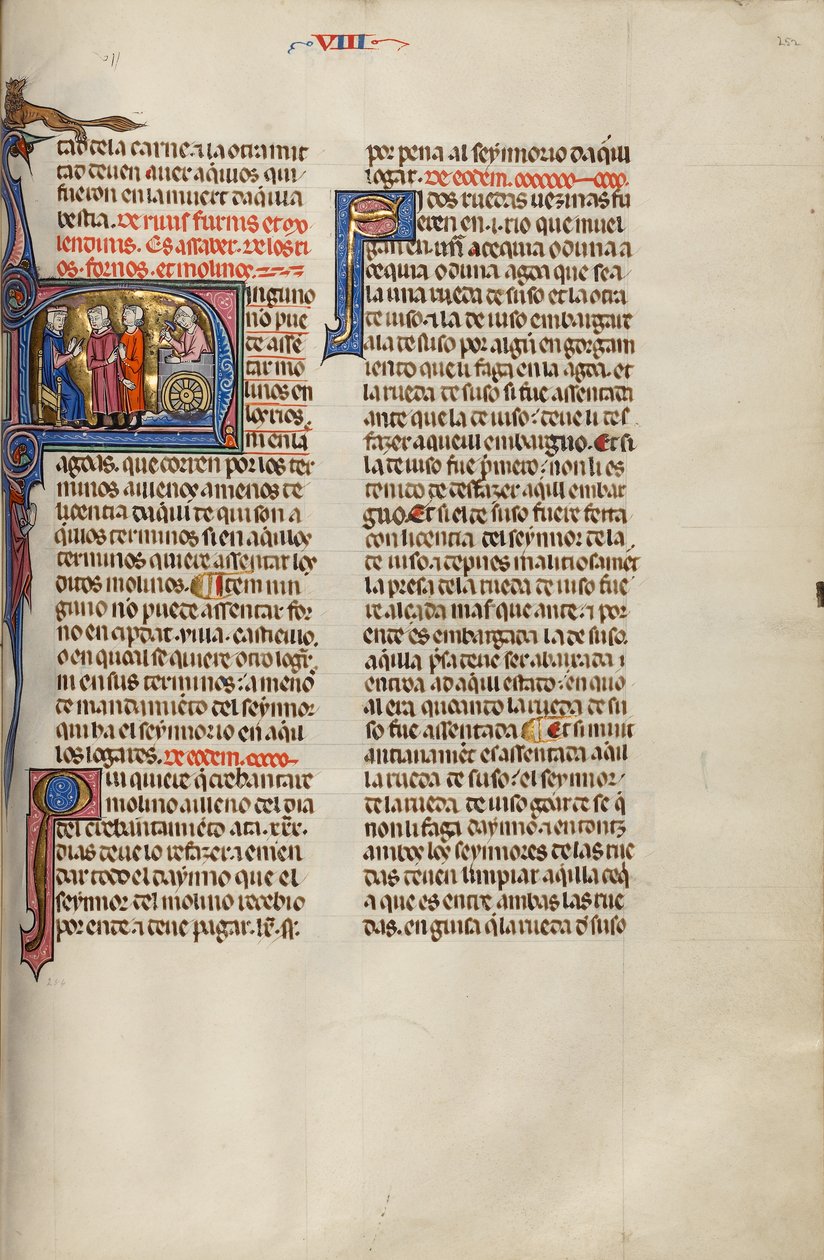 VIII
252
tad de la carne. ⁊ la otra mit
tad deuen auer aqueillos qui
fueron en la muert daqueilla
bestia. De riuis furnis et mo
lendinis. Es assaber. de los ri
os. fornos. et molinos.
Ninguno
no pue
de asse
tar mo
linos en
los rios.
ni en las
agoas. que corren por los ter
minos aillenos a menos de
licentia daqui de qui son a
quillos terminos si en aquillos
terminos quiere assentar los
ditos molinos. Item nin
guno no puede assentar for
no en cipdat. villa. castieillo.
o en qual se quiere otro logar.
ni en sus terminos: a menos
de mandamiento del seynnor
qui ha el seynnorio en aqui
llos logares. De eodem.
Qui quiere que crebantare
molino ailleno del dia
del crebantamiento ata .xxx.
dias deuelo refazer ⁊ emen
dar todo el daynno que el
seynnor del molino recebio
por ende ⁊ deue pagar .lx. ss.
por pena al seynnorio daquil
logar. De eodem.
Si dos ruedas uezinas fu
eren en .i. rio que muel
gan en una acequia o duna a
cequia o duna agoa que sea
la una rueda de suso et la otra
de iuso. ⁊ la de iuso embargare
a la de suso por algun engorgam
iento que li faga en la agoa. et
la rueda de suso si fue assentada
ante que la de iuso: deue li des
fazer aqueill embarguo. Et si
la de iuso fue primero: non li es
tenido de desfazer aquill embar
guo. Et si el de suso fuere feita
con licentia del seynnor de la
de iuso. ⁊ depues malitiosament
la presa de la rueda de iuso fue
re alçada mas que ante. ⁊ por
ende es embargada la de suso.
aquilla presa deue ser abaxada ⁊
entrda ad aquil estado: en quo
al era quoanto la rueda de su
so fue assentada Et si muit
antianament es assentada aquil
la rueda de suso: el seynnor
de la rueda de iuso goarde se que
non li faga daynno. ⁊ entonz
ambos los seynnores de las rue
das deuen limpiar aquilla ceq
a que es entre ambas las rue
das. en guisa que la rueda de suso